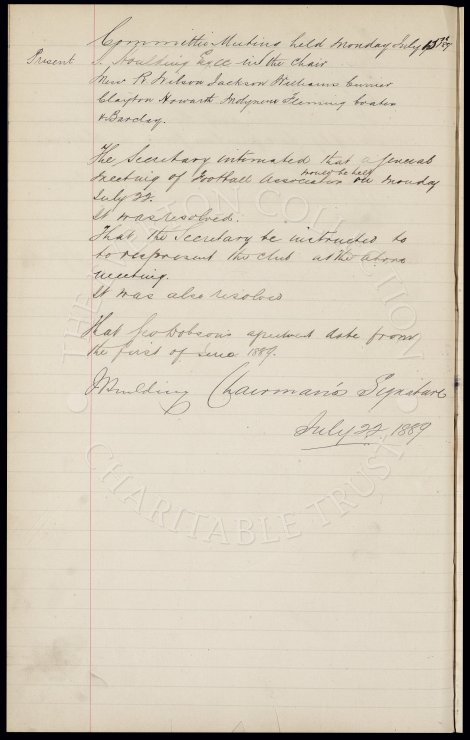 Committee Meeting held Monday July 15th/89
Present J. Houlding Esqre in the Chair
Messrs R. Wilson Jackson Williams
Clayton Howarth Fleming Coates
& Barclay.
The Secretary intimated that a general
meeting of Football Association would be held on Monday
July 22.
It was resolved.
That the Secretary be instructed to
to respresent the club at the above
meeting.
It was also resolved
That Geo Dobson's agreement date from
the first of June 1889.
J Houlding Chairman's Signature
July 22 1889
THE EVERTON COLLECTION
CHARITABLE TRUST